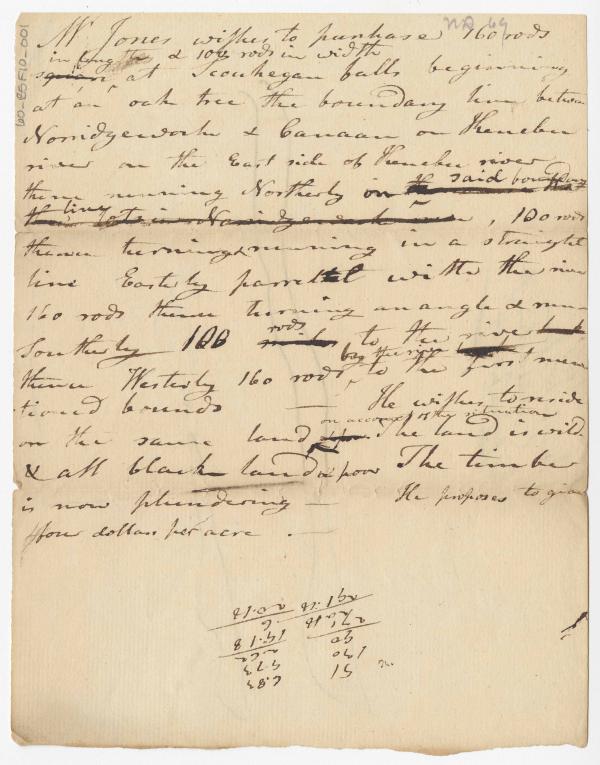 NA 69
60-25F10-001
Mr Jones wishes to purchase 160 rods
in length & 100 rods in width
square at Scouhegan falls beginning
at an oak tree the boundary line between
Norridgewock & Canaan on Kenebec
river on the East side of Kenebec river
thence running Northerly on the said boundary
line, 100 rods
thence turning & running in a straight
line Easterly parrellel with the river
160 rods thence turning an angle & run-
Southerly 100 rods to the river
thence Westerly 160 rods by the river to the first men
tioned bounds — He wishes to reside
on account of the situation
on the same land The land is wild
& all black land & poor The timber
is now plundering — He proposes to give
four dollars per acre . —
6.83
9.73
19.18
6
20.18
51
190
90